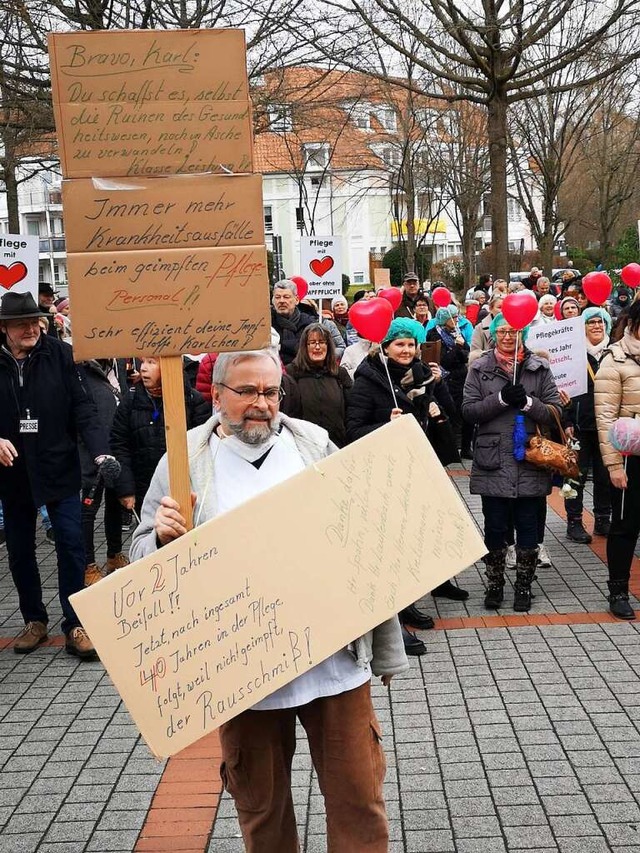 Bravo, Karl:
Du schaffst es, selbst
die Ruinen des Gesund-
heitswesen, noch in Asche
zu verwandeln!
Klasse Leistung!!
Immer mehr
Krankheitsausfälle
beim geimpften Pflege-
Personal!!
sehr effizient deine Impf-
stoffe, Karlchen!
Vor 2 Jahren
Beifall!!
Jetzt, nach ingesamt
40 Jahren in der Pflege
folgt, weil nicht geimpft,
der Rausschmiß!
Pflege
mit
Pflege
mit
aber ohne
IMPFPFLICHT
Pflegekräfte
Jahr
PRESSE
Danke dafür